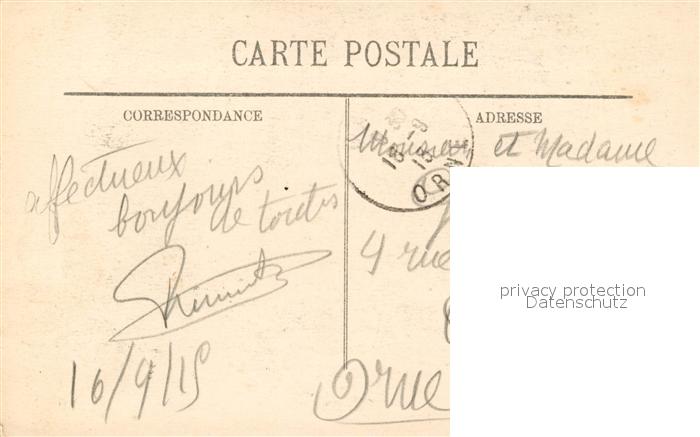 CARTE POSTALE
CORRESPONDANCE
ADRESSE
affectueux
bonjours
de toutes
16/9/15
Monsieur et Madame
4 rue
Orne
ORN
privacy protection
Datenschutz